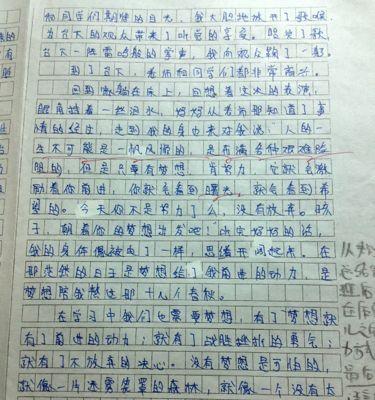 和同学们期望的目光，我大胆地放开了歌喉，
为台下的观众带来了听觉的享受。唱完了歌，
台下一阵雷鸣般的掌声，我向观众鞠了一躬。
到了台下，老师和同学们都非常高兴。
回到家躺在床上，回想着这次的表演，
眼角挂着一丝泪水，妈妈从老师那知道了事
情的经过，走到我的身边来对我说：人的一
生不可能是一帆风顺的，是布满各种艰难险
阻的，但是只要有梦想，肯努力，它就会激
励着你前进，你就会看到曙光，就会看到希
望的。今天你不是努力了么，没有放弃。孩
子，朝着你的梦想出发吧！听完妈妈的话，
我的身体像被电了一样，思绪开阔起来。在
那茫然的日子是梦想给了我前进的动力，是
梦想陪我熬过那十几个春秋。
在学习中我们也需要梦想，有了梦想就
有了前进的动力；就有了战胜挫折的勇气；
就有了不放弃的决心。没有梦想是可怕的，
就像一片迷雾笼罩的森林，就像一个没有太